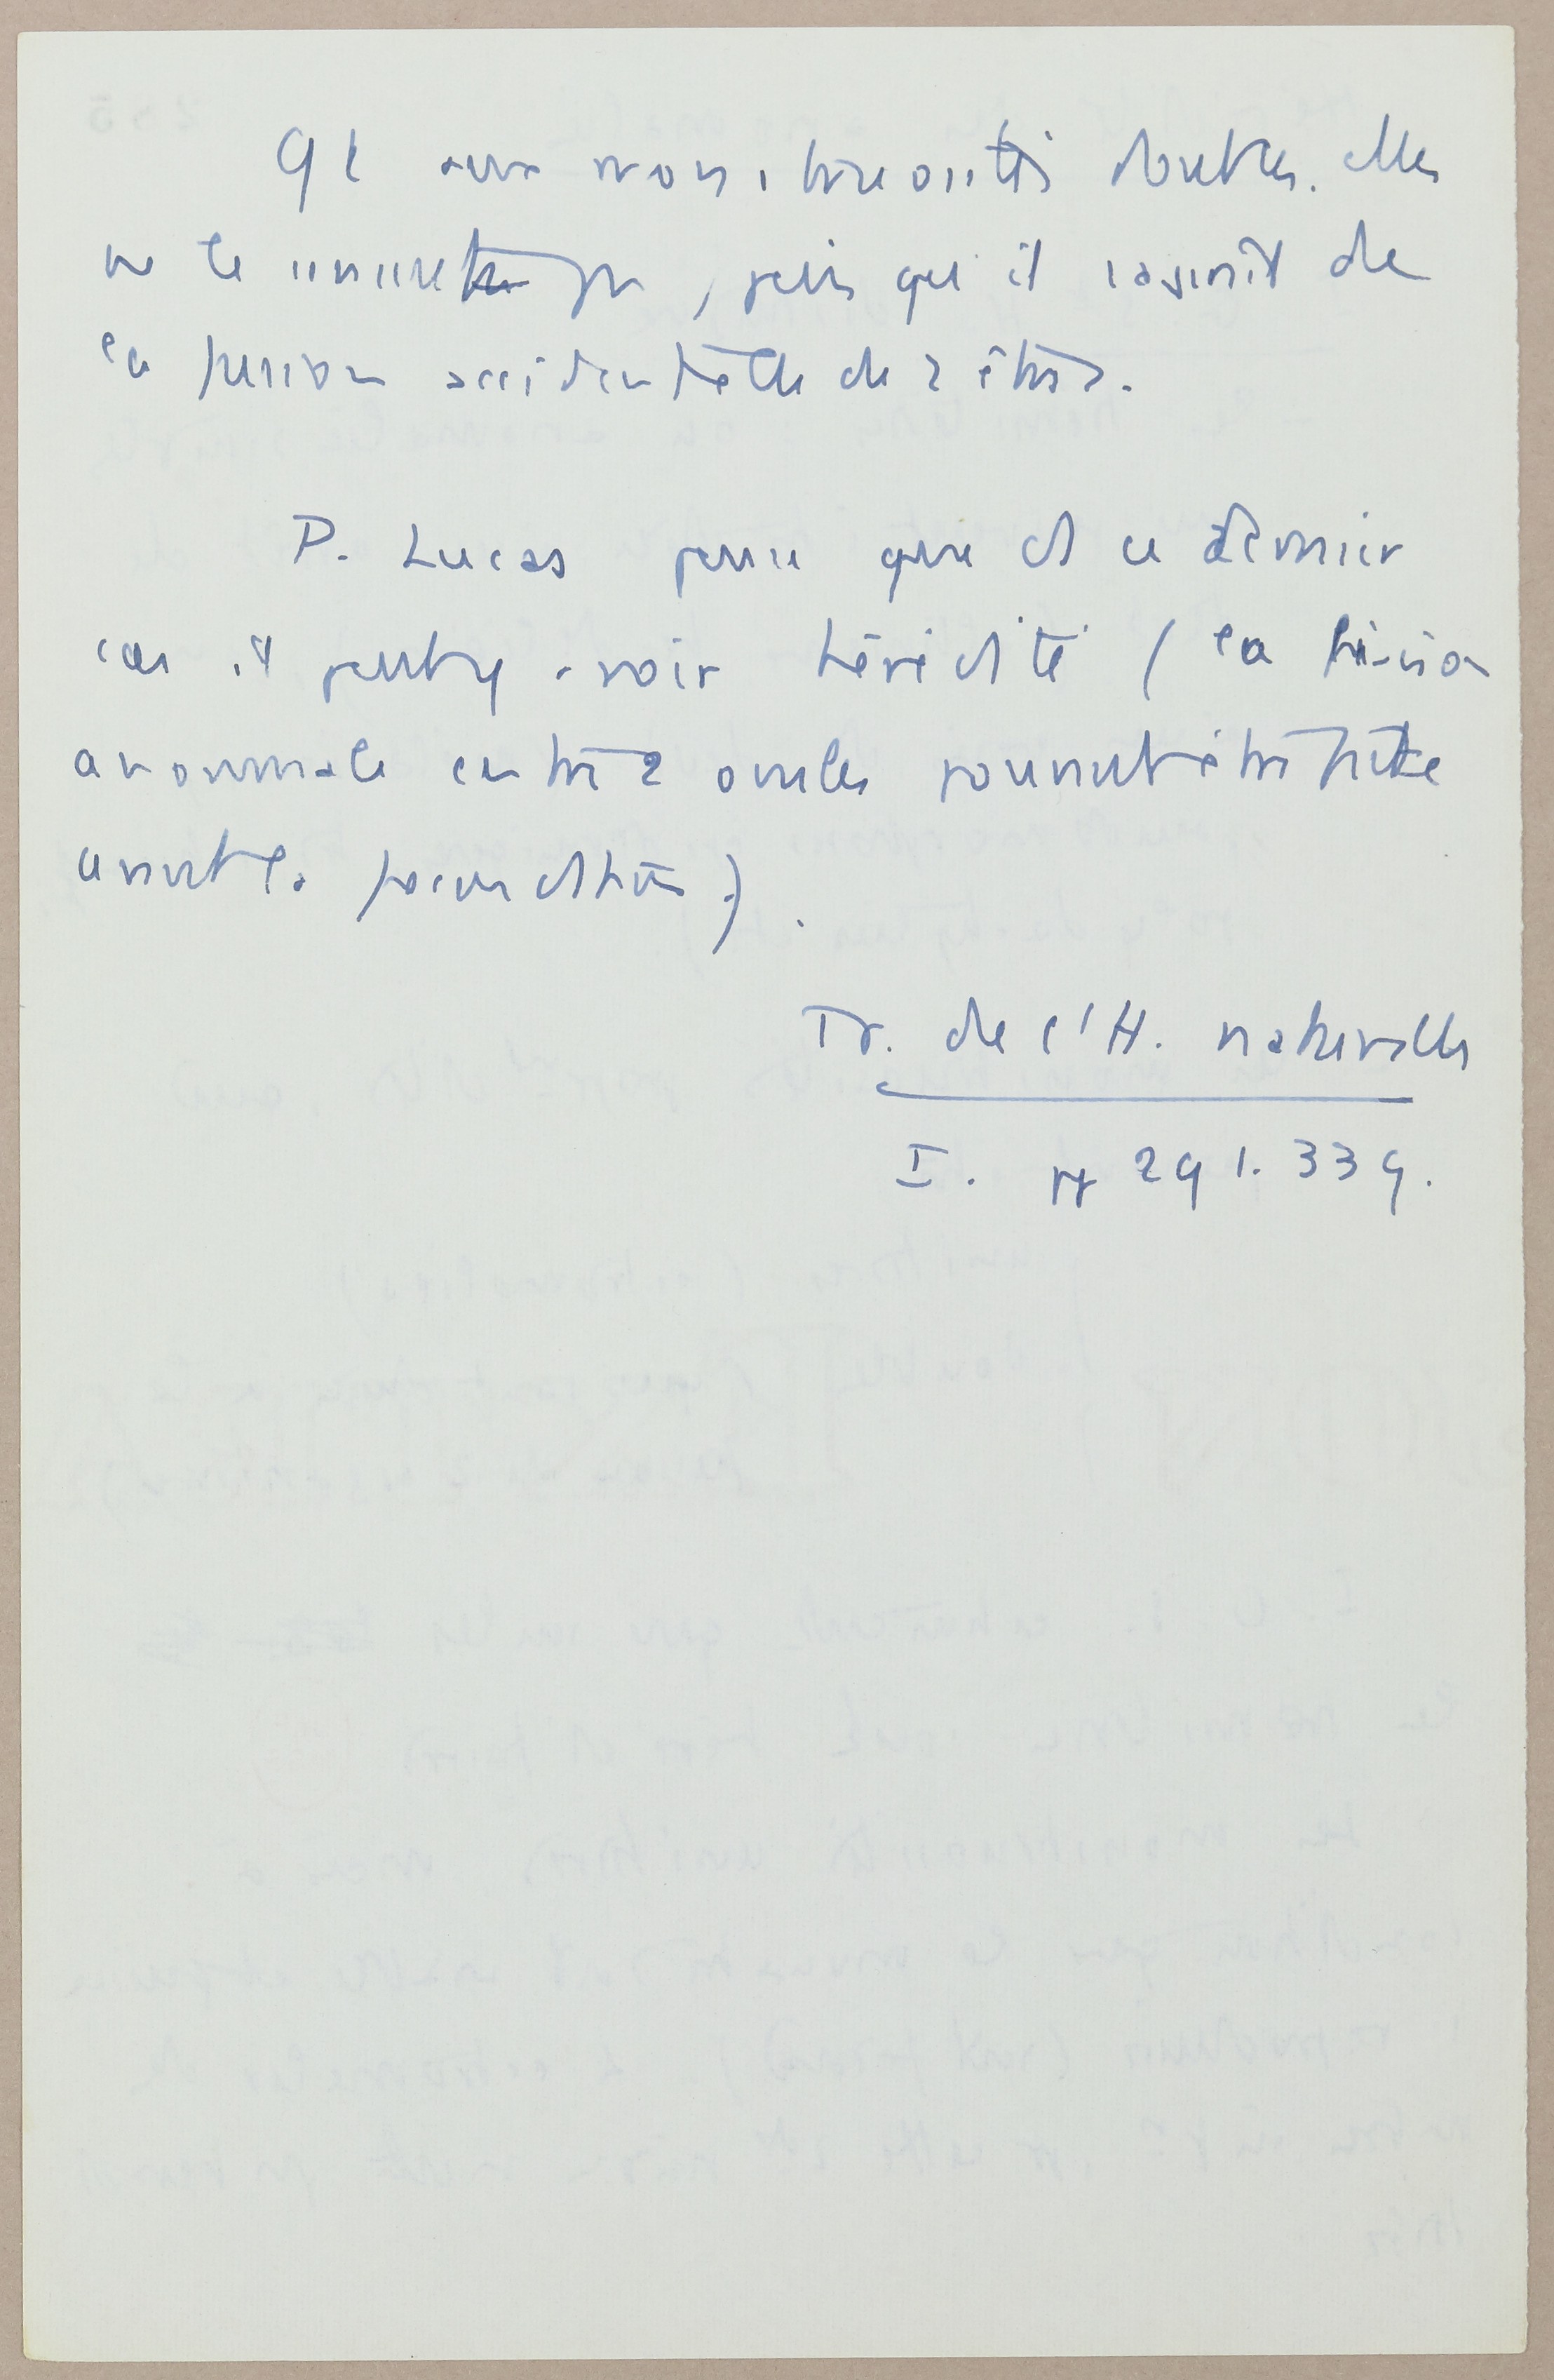 Qt aux monstruosités doubles. elles
ne le peuvent pas, puis qu'il s'agirait de
la fusion accidentelle de 2 êtres.
P. Lucas pense que ds ce dernier
cas il peut y avoir hérédité (la
anormale entre 2 ovules pouvant être
avant la fécondation).
Tr. de l'H. naturelle
I. pp 291. 339.